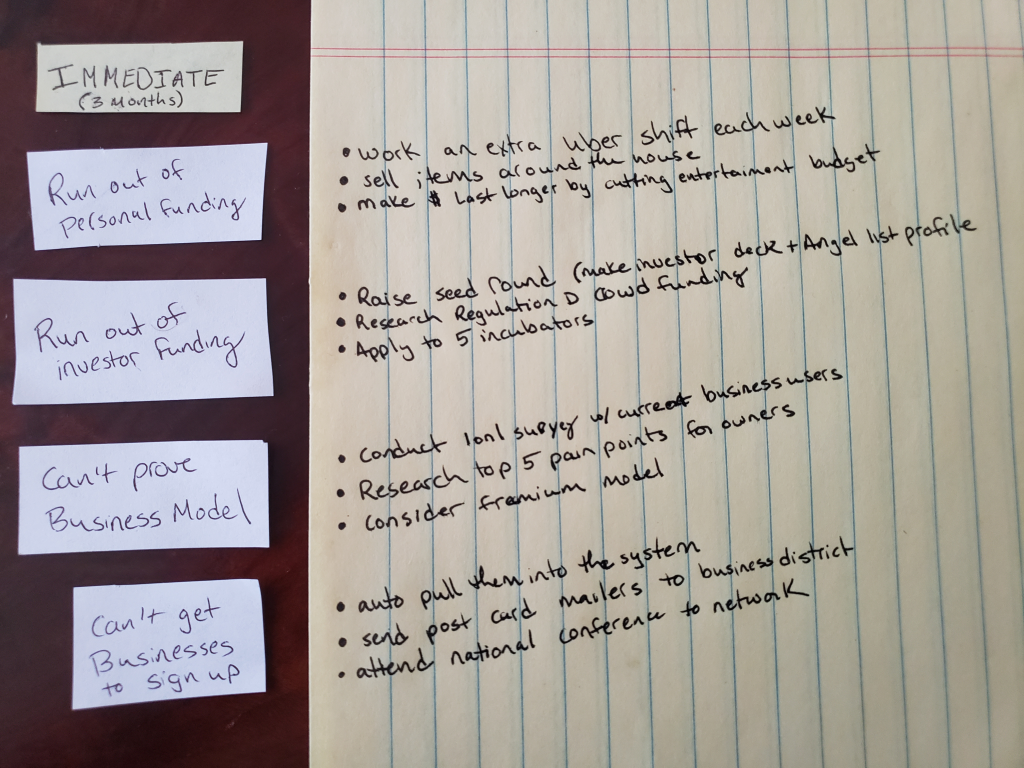 IMMEDIATE
(3 months)
Run out of
personal funding
• work an extra uber shift each week
• sell items around the house
• make $ last longer by cutting entertaiment budget
Run out of
investor funding
• Raise seed round (make investor deck + Angel list profile
• Research Regulation D Cowd funding
• Apply to 5 incubators
Can't prove
Business Model
• conduct 1on1 survey w/ current business users
• Research top 5 pain points for owners
• consider fremium model
Can't get
Businesses
to sign up
• auto pull them into the system
• send post card mailers to business district
• attend national conference to network